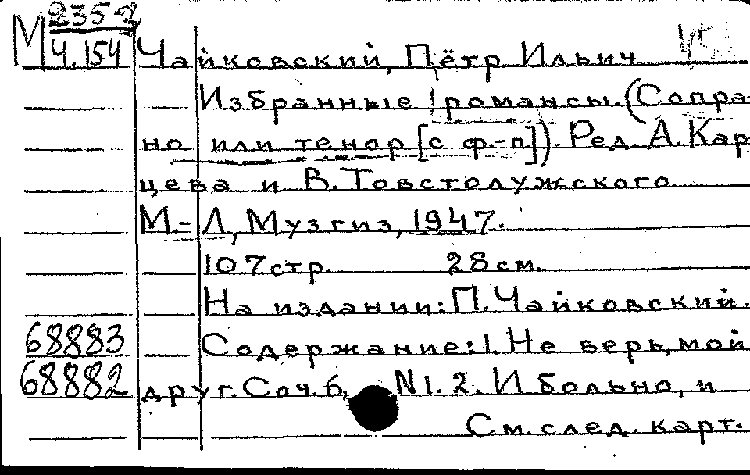 М 2352
4.154 Чайковский, Пётр Ильич
Избранные романсы. (Сопра-
но или тенор [с ф.-п]). Ред. А. Кар-
цева и В. Товстолужского
М.-Л, Музгиз, 1947.
107 стр. 28 см.
На издании: П. Чайковский.
68883 Содержание: 1. Не верь, мой
68882 друг. Соч. 6, N 1. 2. И больно, и
См. след. карт.